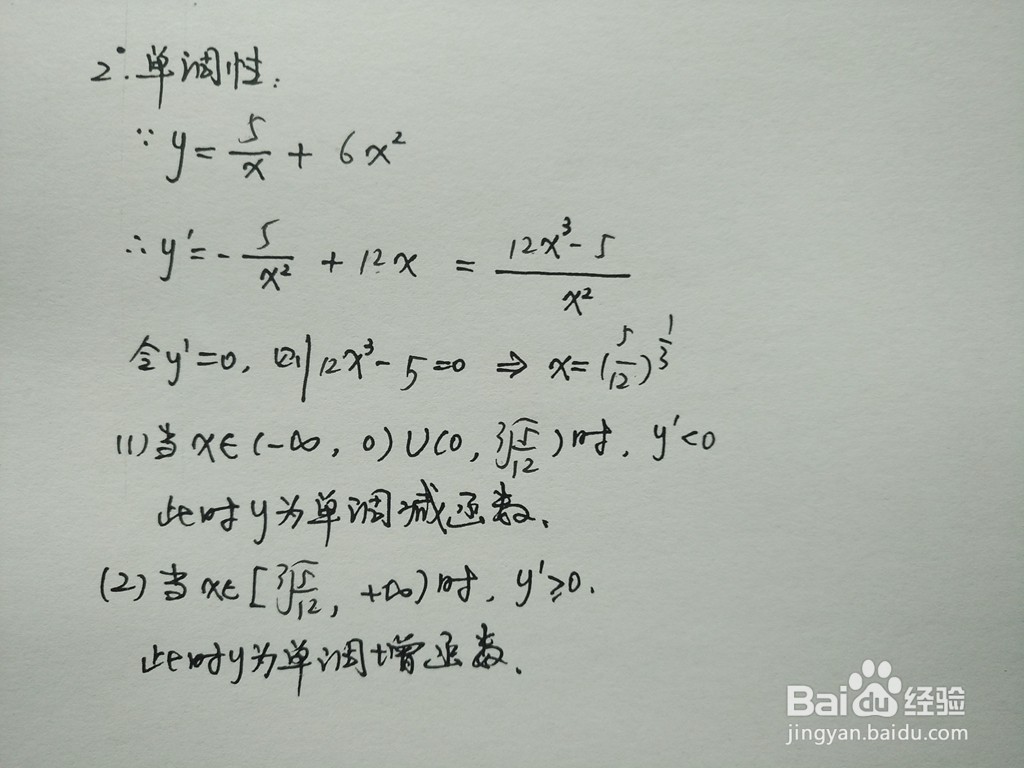 2°.单调性:
∵ y = 5/x + 6x²
∴ y' = -5/x² + 12x = (12x³-5)/x²
令y'=0, 则12x³-5=0 ⇒ x=(5/12)^(1/3)
(1)当x∈(-∞, 0)∪(0, ³√5/12)时, y'<0
此时y为单调减函数.
(2)当x∈[³√5/12, +∞)时, y'≥0.
此时y为单调增函数.
Baidu经验
jingyan.baidu.com